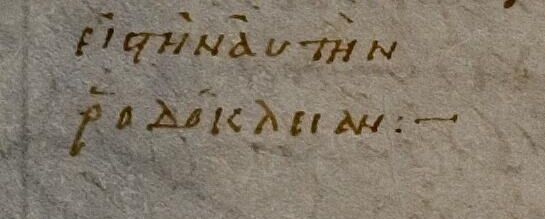 εἰς τὴν ἀυτὴν
ῥοδόκλειαν :—